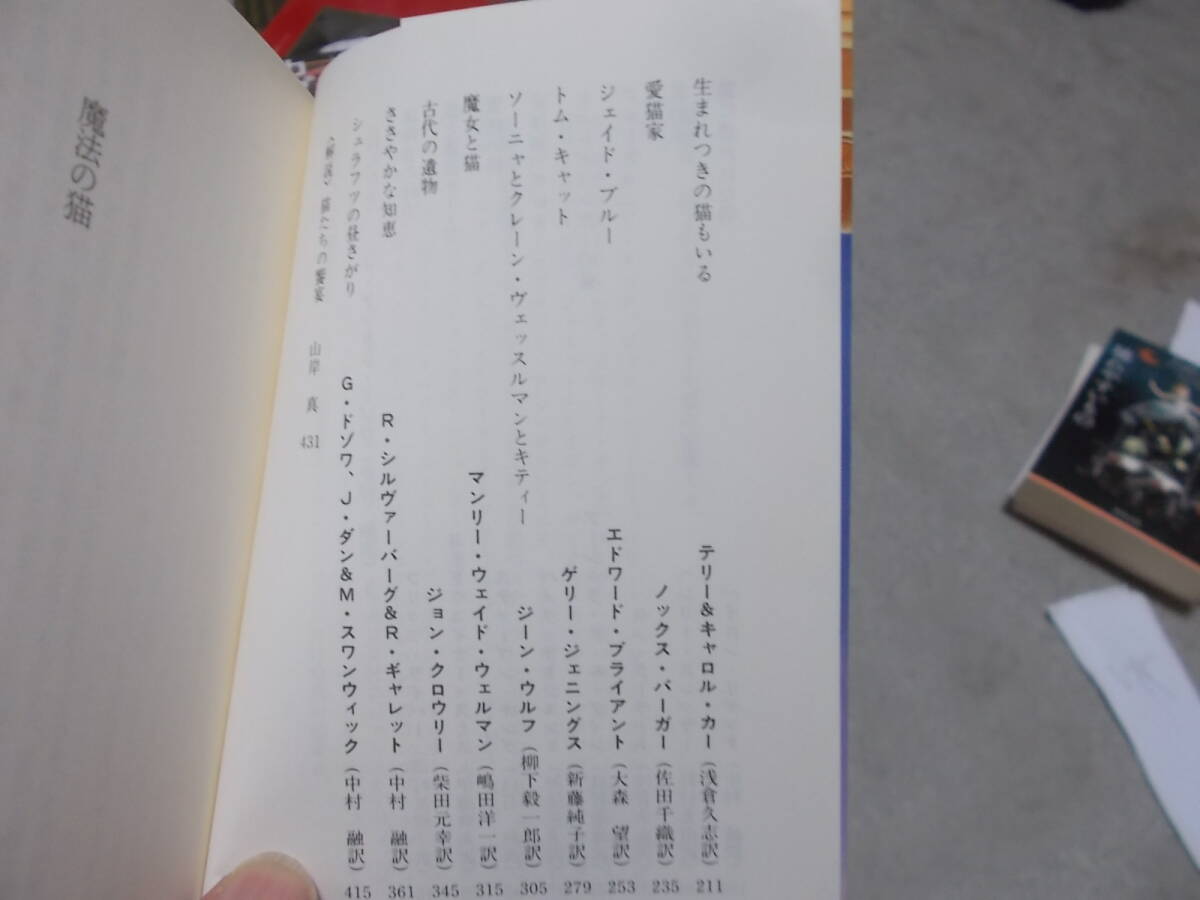 生まれつきの猫もいる　テリー＆キャロル・カー（浅倉久志訳）　211
愛猫家　ノックス・バーガー（佐田千織訳）　235
ジェイド・ブルー　エドワード・ブライアント（大森　望訳）　253
トム・キャット　ゲリー・ジェニングス（新藤純子訳）　279
ソーニャとクレーン・ヴェッスルマンとキティー　ジーン・ウルフ（柳下毅一郎訳）　305
魔女と猫　マンリー・ウェイド・ウェルマン（嶋田洋一訳）　315
古代の遺物　ジョン・クロウリー（柴田元幸訳）　345
ささやかな知恵　R・シルヴァーバーグ＆R・ギャレット（中村　融訳）　361
シュラフツの昼さがり　G・ドゾワ、J・ダン＆M・スワンウィック（中村　融訳）　415
〈解説〉猫たちの饗宴　山岸　真　431
魔法の猫